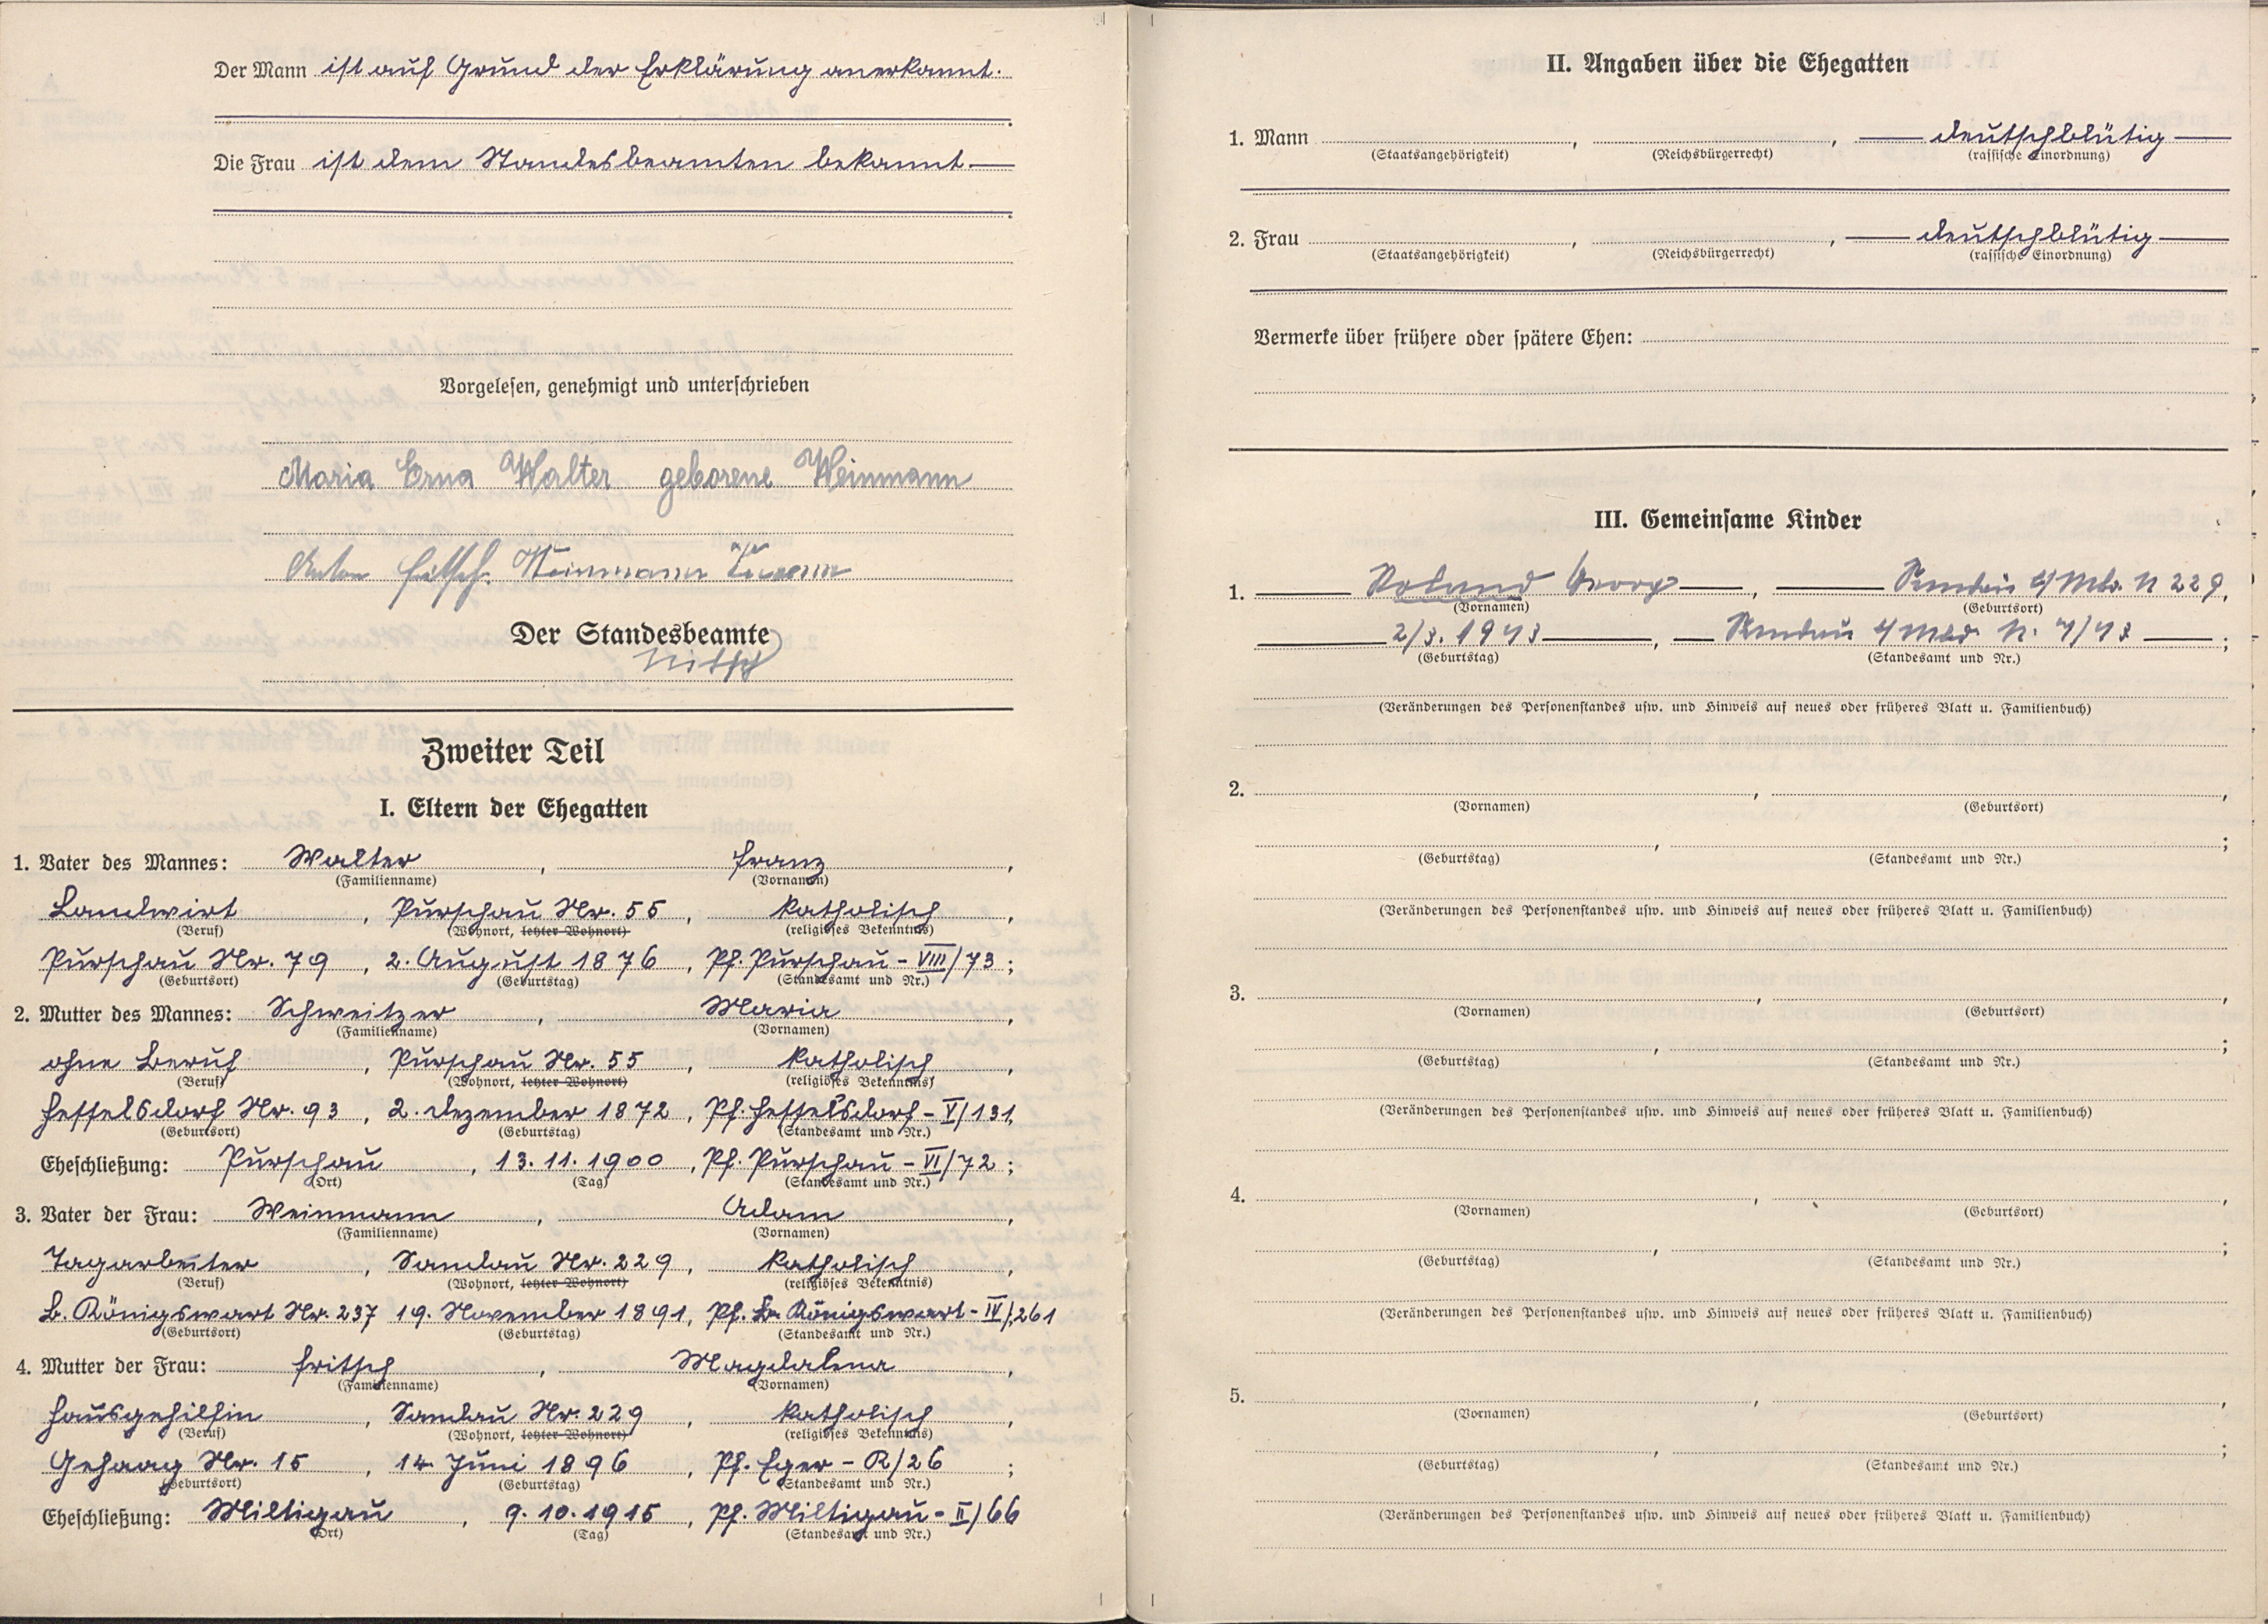 Der Mann ist auf Grund der Erklärung anerkannt.
Die Frau ist dem Standesbeamten bekannt.
Vorgelesen, genehmigt und unterschrieben
Maria Erna Walter geborene Weinmann
Anton Fritsch. Weinmann
Der Standesbeamte
Nitsch
Zweiter Teil
I. Eltern der Ehegatten
1. Vater des Mannes: Walter, Franz,
(Familienname) (Vornamen)
Landwirt, Purschau Nr. 55, katholisch,
(Beruf) (Wohnort, letzter Wohnort) (religiöses Bekenntnis)
Purschau Nr. 79, 2. August 1876, Pf. Purschau - VIII/73;
(Geburtsort) (Geburtstag) (Standesamt und Nr.)
2. Mutter des Mannes: Schweitzer, Maria,
(Familienname) (Vornamen)
ohne Beruf, Purschau Nr. 55, katholisch,
(Beruf) (Wohnort, letzter Wohnort) (religiöses Bekenntnis)
Hesselsdorf Nr. 93, 2. Dezember 1872, Pf. Hesselsdorf - V/131,
(Geburtsort) (Geburtstag) (Standesamt und Nr.)
Eheschließung: Purschau, 13.11.1900, Pf. Purschau - VI/72;
(Ort) (Tag) (Standesamt und Nr.)
3. Vater der Frau: Weinmann, Adam,
(Familienname) (Vornamen)
Tagarbeiter, Sandau Nr. 229, katholisch,
(Beruf) (Wohnort, letzter Wohnort) (religiöses Bekenntnis)
B. Königswart Nr. 237 19. November 1891, Pf. B. Königswart - IV/261
(Geburtsort) (Geburtstag) (Standesamt und Nr.)
4. Mutter der Frau: Fritsch, Magdalena,
(Familienname) (Vornamen)
Hausgehilfin, Sandau Nr. 229, katholisch,
(Beruf) (Wohnort, letzter Wohnort) (religiöses Bekenntnis)
Gehaag Nr. 15, 14. Juni 1896, Pf. Eger - R/26;
(Geburtsort) (Geburtstag) (Standesamt und Nr.)
Eheschließung: Miltigau, 9.10.1915, Pf. Miltigau - II/66
(Ort) (Tag) (Standesamt und Nr.)
II. Angaben über die Ehegatten
1. Mann , , deutschblütig
(Staatsangehörigkeit) (Reichsbürgerrecht) (rassische Einordnung)
2. Frau , , deutschblütig
(Staatsangehörigkeit) (Reichsbürgerrecht) (rassische Einordnung)
Vermerke über frühere oder spätere Ehen:
III. Gemeinsame Kinder
1. Roland Georg, Sandau N 229,
(Vornamen) (Geburtsort)
2/3. 1943, Sandau N. 7/43;
(Geburtstag) (Standesamt und Nr.)
(Veränderungen des Personenstandes usw. und Hinweis auf neues oder früheres Blatt u. Familienbuch)
2. , ,
(Vornamen) (Geburtsort)
, ;
(Geburtstag) (Standesamt und Nr.)
(Veränderungen des Personenstandes usw. und Hinweis auf neues oder früheres Blatt u. Familienbuch)
3. , ,
(Vornamen) (Geburtsort)
, ;
(Geburtstag) (Standesamt und Nr.)
(Veränderungen des Personenstandes usw. und Hinweis auf neues oder früheres Blatt u. Familienbuch)
4. , ,
(Vornamen) (Geburtsort)
, ;
(Geburtstag) (Standesamt und Nr.)
(Veränderungen des Personenstandes usw. und Hinweis auf neues oder früheres Blatt u. Familienbuch)
5. , ,
(Vornamen) (Geburtsort)
, ;
(Geburtstag) (Standesamt und Nr.)
(Veränderungen des Personenstandes usw. und Hinweis auf neues oder früheres Blatt u. Familienbuch)